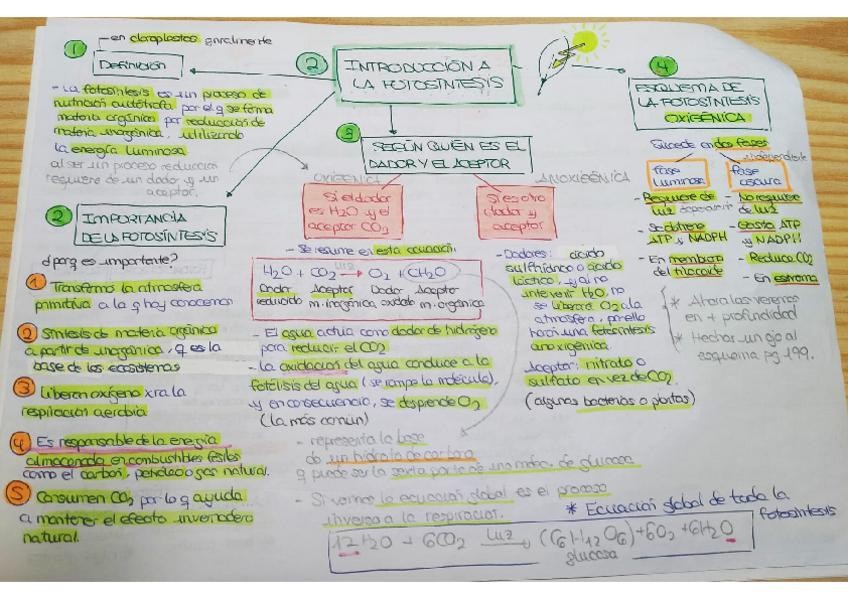 1
en cloroplastos generalmente
Definición
- La fotosíntesis es un proceso de
nutrición autótrofa por el q se forma
materia orgánica por reducción de
materia inorgánica, utilizando
la energía luminosa
al ser un proceso reducción
requiere de un dador y un
aceptor.
2
INTRODUCCIÓN A
LA FOTOSÍNTESIS
2
IMPORTANCIA
DE LA FOTOSÍNTESIS
¿porq es importante?
1 Transformó la atmósfera
primitiva a la q hoy conocemos
2 Síntesis de materia orgánica
a partir de inorgánica, q es la
base de los ecosistemas
3 Liberan oxígeno xra la
respiración aerobia.
4 Es responsable de la energía
almacenada en combustibles fósiles
como el carbón, petróleo o gas natural.
5 Consumen CO2 por lo q ayuda
a mantener el efecto invernadero
natural.
3
SEGÚN QUIÉN ES EL
DADOR Y EL ACEPTOR
OXIGÉNICA
Si el dador
es H2O y el
aceptor CO2
ANOXIGÉNICA
Si es otro
dador y
aceptor
- Se resume en esta ecuación:
luz
H2O + CO2 → O2 + (CH2O)
Dador Aceptor Dador Aceptor
reducido m. inorgánica oxidado m. orgánica
- El agua actúa como dador de hidrógeno
para reducir el CO2
- la oxidación del agua conduce a la
fotólisis del agua (se rompe la molécula),
y en consecuencia, se desprende O2
(la más común)
- representa la base
de un hidrato de carbono
q puede ser la sexta parte de una moléc. de glucosa
- Si vemos la ecuación global es el proceso
inverso a la respiración.
- Dadores: ácido
sulfhídrico o ácido
láctico, y al no
intervenir H2O, no
se liberará O2 a la
atmósfera, por ello
hacen una fotosíntesis
anoxigénica.
Aceptor: nitrato o
sulfato en vez de CO2.
(algunas bacterias o plantas)
4
ESQUEMA DE
LA FOTOSÍNTESIS
OXIGÉNICA
Sucede en dos fases
independiente
Fase
luminosa
- Requiere de
luz
- Se obtiene
ATP y NADPH
- En membrana
del tilacoide
Fase
oscura
- No requiere
de luz
- Gasta ATP
y NADPH
- Reduce CO2
- En estroma
* Ahora las veremos
en + profundidad
* Hechar un ojo al
esquema pg 199.
* Ecuación global de toda la
fotosíntesis
12 H2O + 6CO2 luz → (C6H12O6) + 6O2 + 6H2O
glucosa